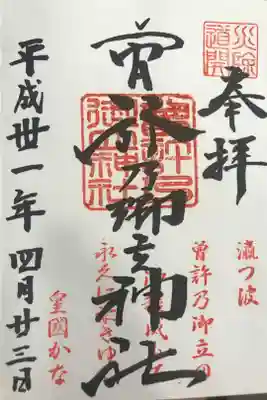 奉拝
道開
瀛つ波
曾許乃御立の
曽許乃御立神社
永久に
皇國かな
平成卅一年 四月廿三日